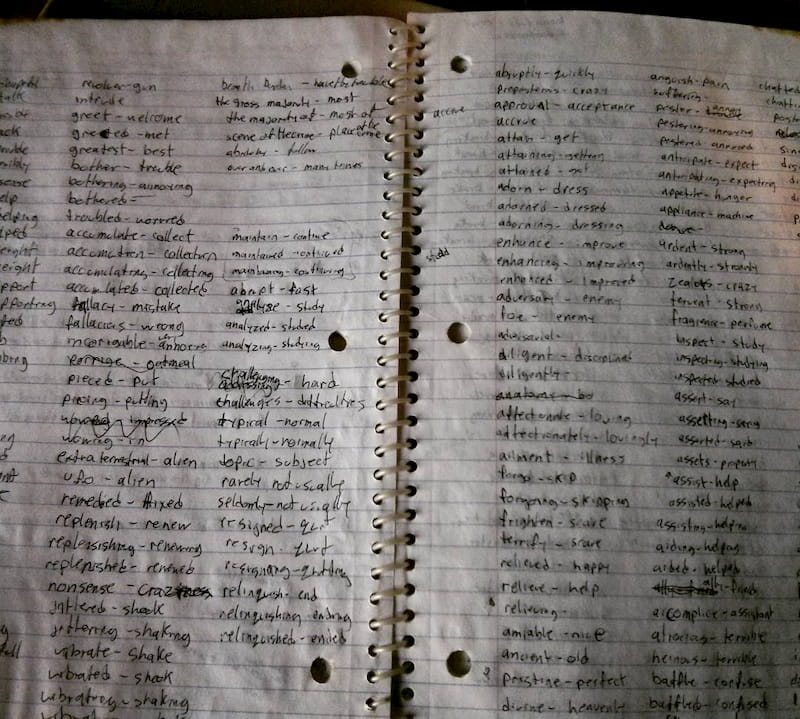 revolver-gun
intrude
greet - welcome
greeted - met
greatest - best
bother - trouble
bothering - annoying
bothered -
troubled - worried
accumulate - collect
accumulation - collection
accumulating - collecting
accumulated - collected
fallacy - mistake
fallacious - wrong
porridge - oatmeal
pieced - put
piecing - putting
extraterrestrial - alien
ufo - alien
remedied - fixed
replenish - renew
replenishing - renewing
replenished - renewed
nonsense - craziness
jittered - shook
jittering - shaking
vibrate - shake
vibrated - shook
vibrating - shaking
the gross majority - most
the majority of - most of
scene of the crime - place of the crime
maintain - continue
maintained - continued
maintaining - continuing
abrupt - fast
analyze - study
analyzed - studied
analyzing - studying
challenging - hard
challenges - difficulties
typical - normal
typically - normally
topic - subject
rarely not usually
seldomly - not usually
resigned - quit
resign - quit
resigning - quitting
relinquish - end
relinquishing - ending
relinquished - ended
accrue
abruptly - quickly
preposterous - crazy
approval - acceptance
accrue
attain - get
attaining - getting
attained - got
adorn - dress
adorned - dressed
adorning - dressing
enhance - improve
enhancing - improving
enhanced - improved
adversary - enemy
foe - enemy
diligent - disciplined
diligently -
affectionate - loving
affectionately - lovingly
ailment - illness
forgo - skip
forgoing - skipping
frighten - scare
terrify - scare
relieved - happy
relieve - help
relieving -
amiable - nice
ancient - old
pristine - perfect
divine - heavenly
anguish - pain
suffering -
pester - annoy
pestering - annoying
pestered - annoyed
anticipate - expect
anticipating - expecting
appetite - hunger
appliance - machine
ardent - strong
ardently - strongly
zealous - crazy
fervent - strong
fragrence - perfume
inspect - study
inspecting - studying
inspected studied
assert - say
asserting - saying
asserted - said
assets - property
assist - help
assisted - helped
assisting - helping
aiding - helping
aided - helped
accomplice - assistant
atrocious - terrible
heinous - terrible
baffle - confuse
baffled - confused